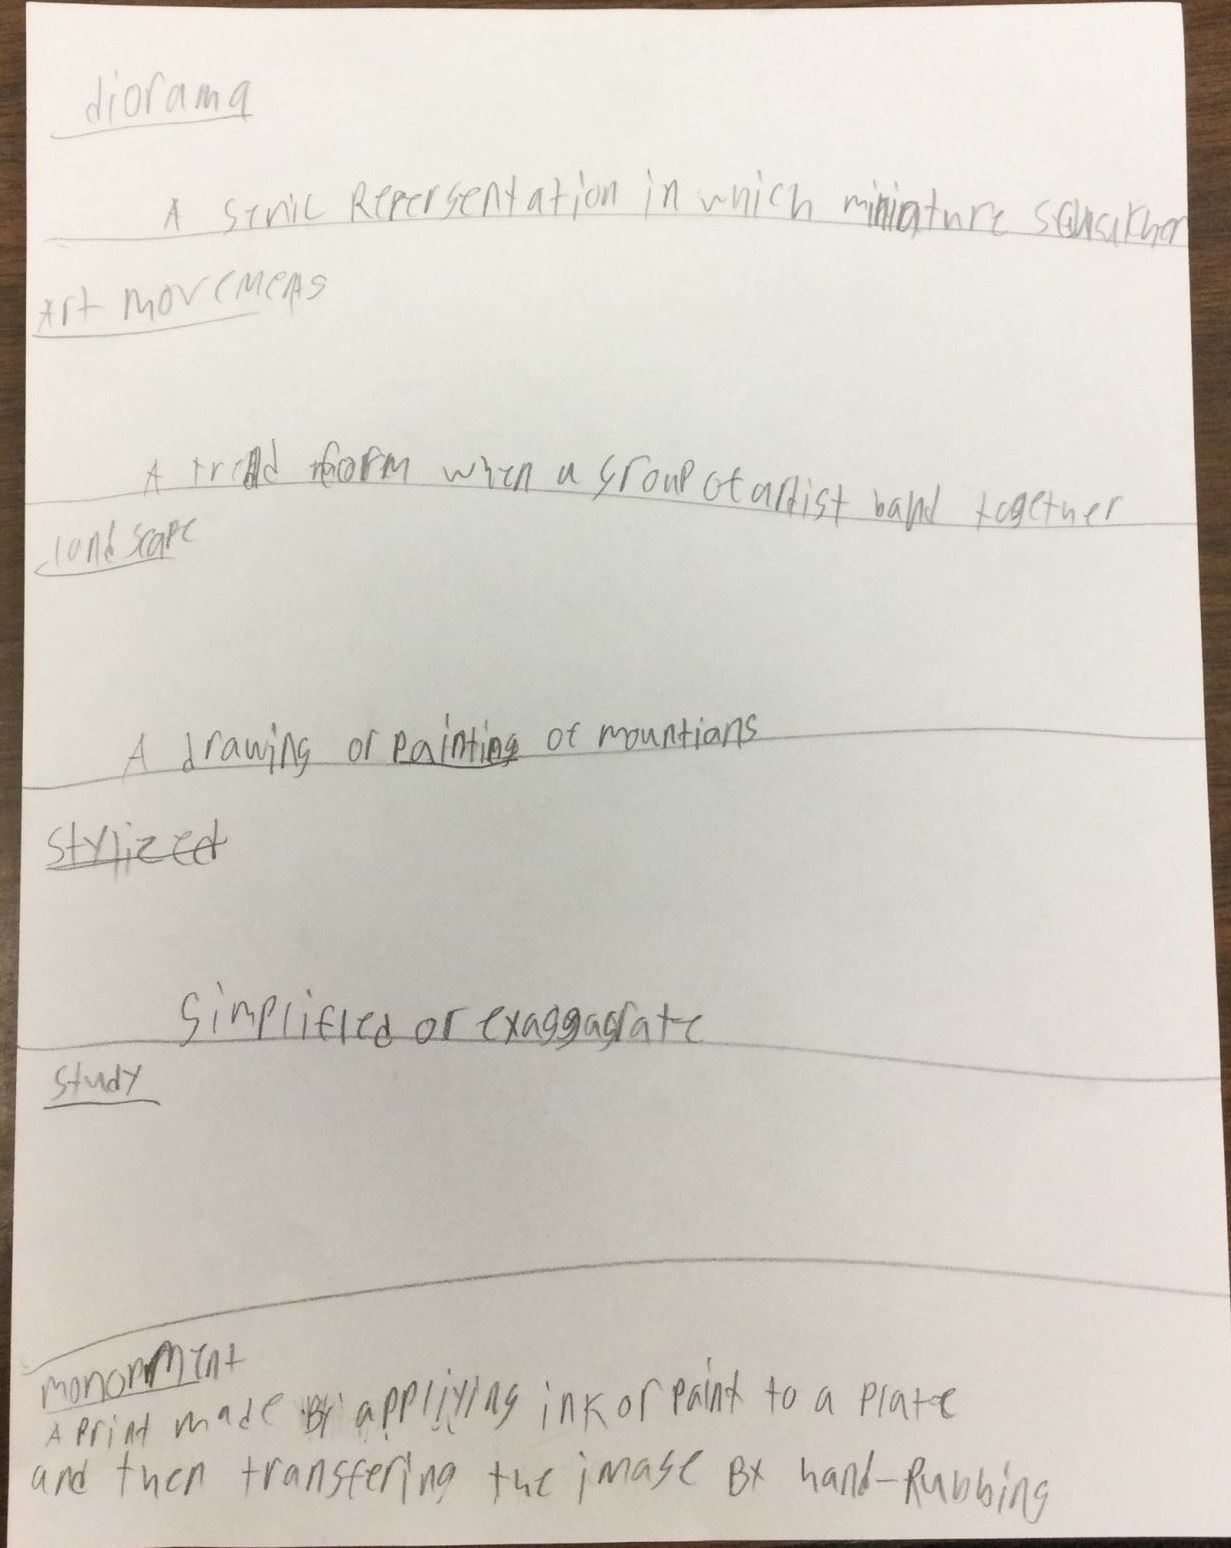 diorama
A senic Repersentation in which miniature
Art movements
A trend form when a group of artist band together
landscape
A drawing or painting of mountians
stylized
Simplified or exaggagrate
study
A print made By appliying ink or paint to a plate
and then transfering the image By hand-Rubbing